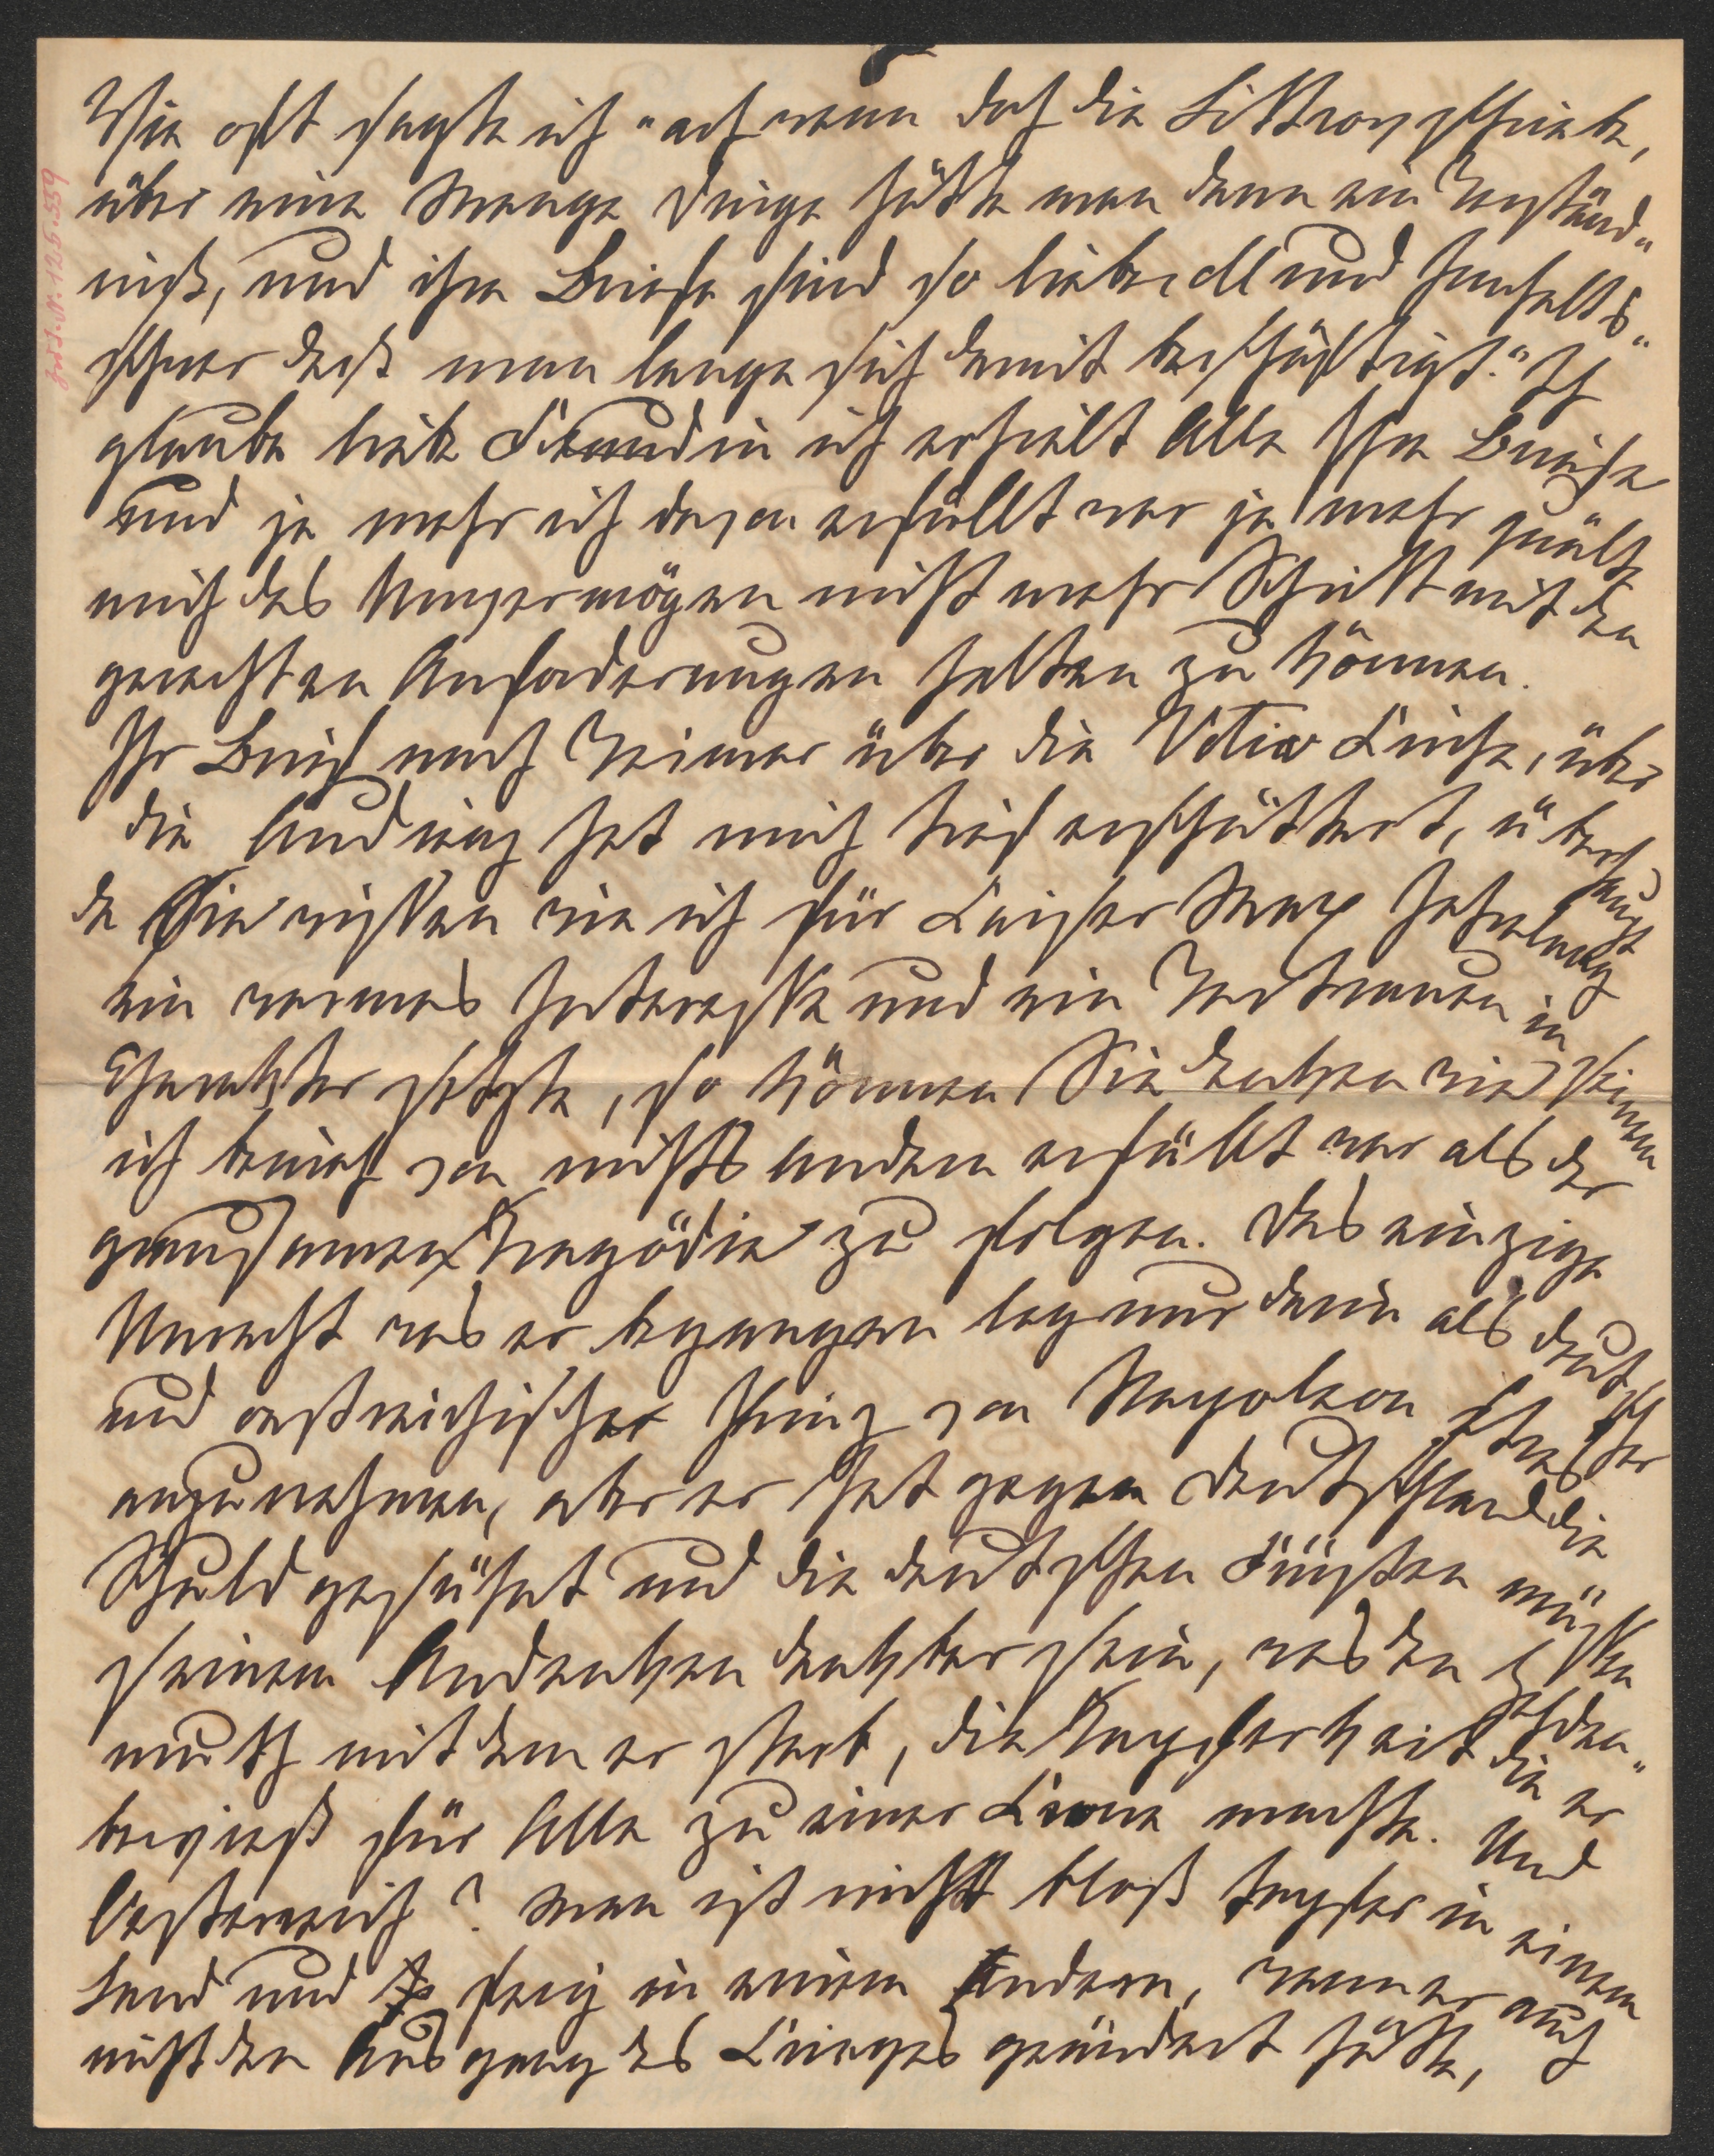 Wie oft sagte ich "ach wenn doch die Littrow schriebe,
über eine Menge Dinge hätte man dann ein Verständ"
niß, und ihre Briefe sind so liebevoll und inhalts"
schwer daß man lange sich damit beschäftigt." Ich
glaube liebe Freundin ich erhielt Alle Ihre Briefe
und je mehr ich davon erfüllt war je mehr quälte
mich das Unvermögen nicht mehr Schritt mit den
gerechten Anforderungen halten zu können.
Ihr Brief nach Weimar über die Votiv Kirche, über
die Andwig hat mich tief erschüttert, überhaupt
da Sie wissen wie ich für Kaiser Max jahrelang
ein warmes Interesse und ein Vertrauen in seinen
Charakter setzte, so können Sie denken wie
ich bewegt von nichts Andern erfüllt war als der
grausamen Tragödie zu folgen. Das einzige
Unrecht was er begangen lag nur darin als deutscher
und oestreichischer Prinz von Napoleon Etwas
anzunehmen, aber er hat gegen Deutschland die
Schuld gesühnt und die deutschen Fürsten müssen
seinem Andenken dankbar sein, was den
muth mit dem er starb, die Tapferkeit die er
bewieß für Alle zu einer Krone machte. Und
Oesterreich? Man ist nicht bloß tapfer in einem
Land und feig in einem Andern, wenn er auch
nicht den Ausgang des Krieges geändert hätte,
N. 125.559